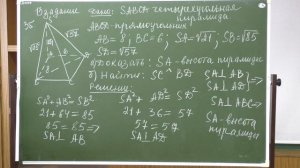 В задание Дано: SABCD-четырёхугольная
пирамида
ABCD-прямоугольник
AB=8; BC=6; SA=√21, SB=√85
SD=√57
а) Доказать: SA-высота пирамиды
б) Найти: SC^BD
Решение:
SA²+AB²=SB²
21+64=85
85=85 ⇒
SA⊥AB
SA²+AD²=SD²
21+36=57
57=57
SA⊥AD
SA⊥AB
SA⊥AD ⇒
SA⊥ABC
SA-высота
пирамиды